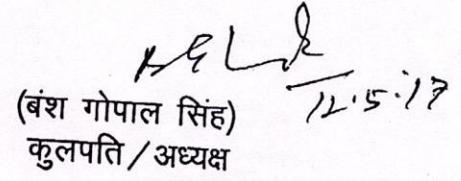 12.5.17
(बंश गोपाल सिंह)
कुलपति / अध्यक्ष